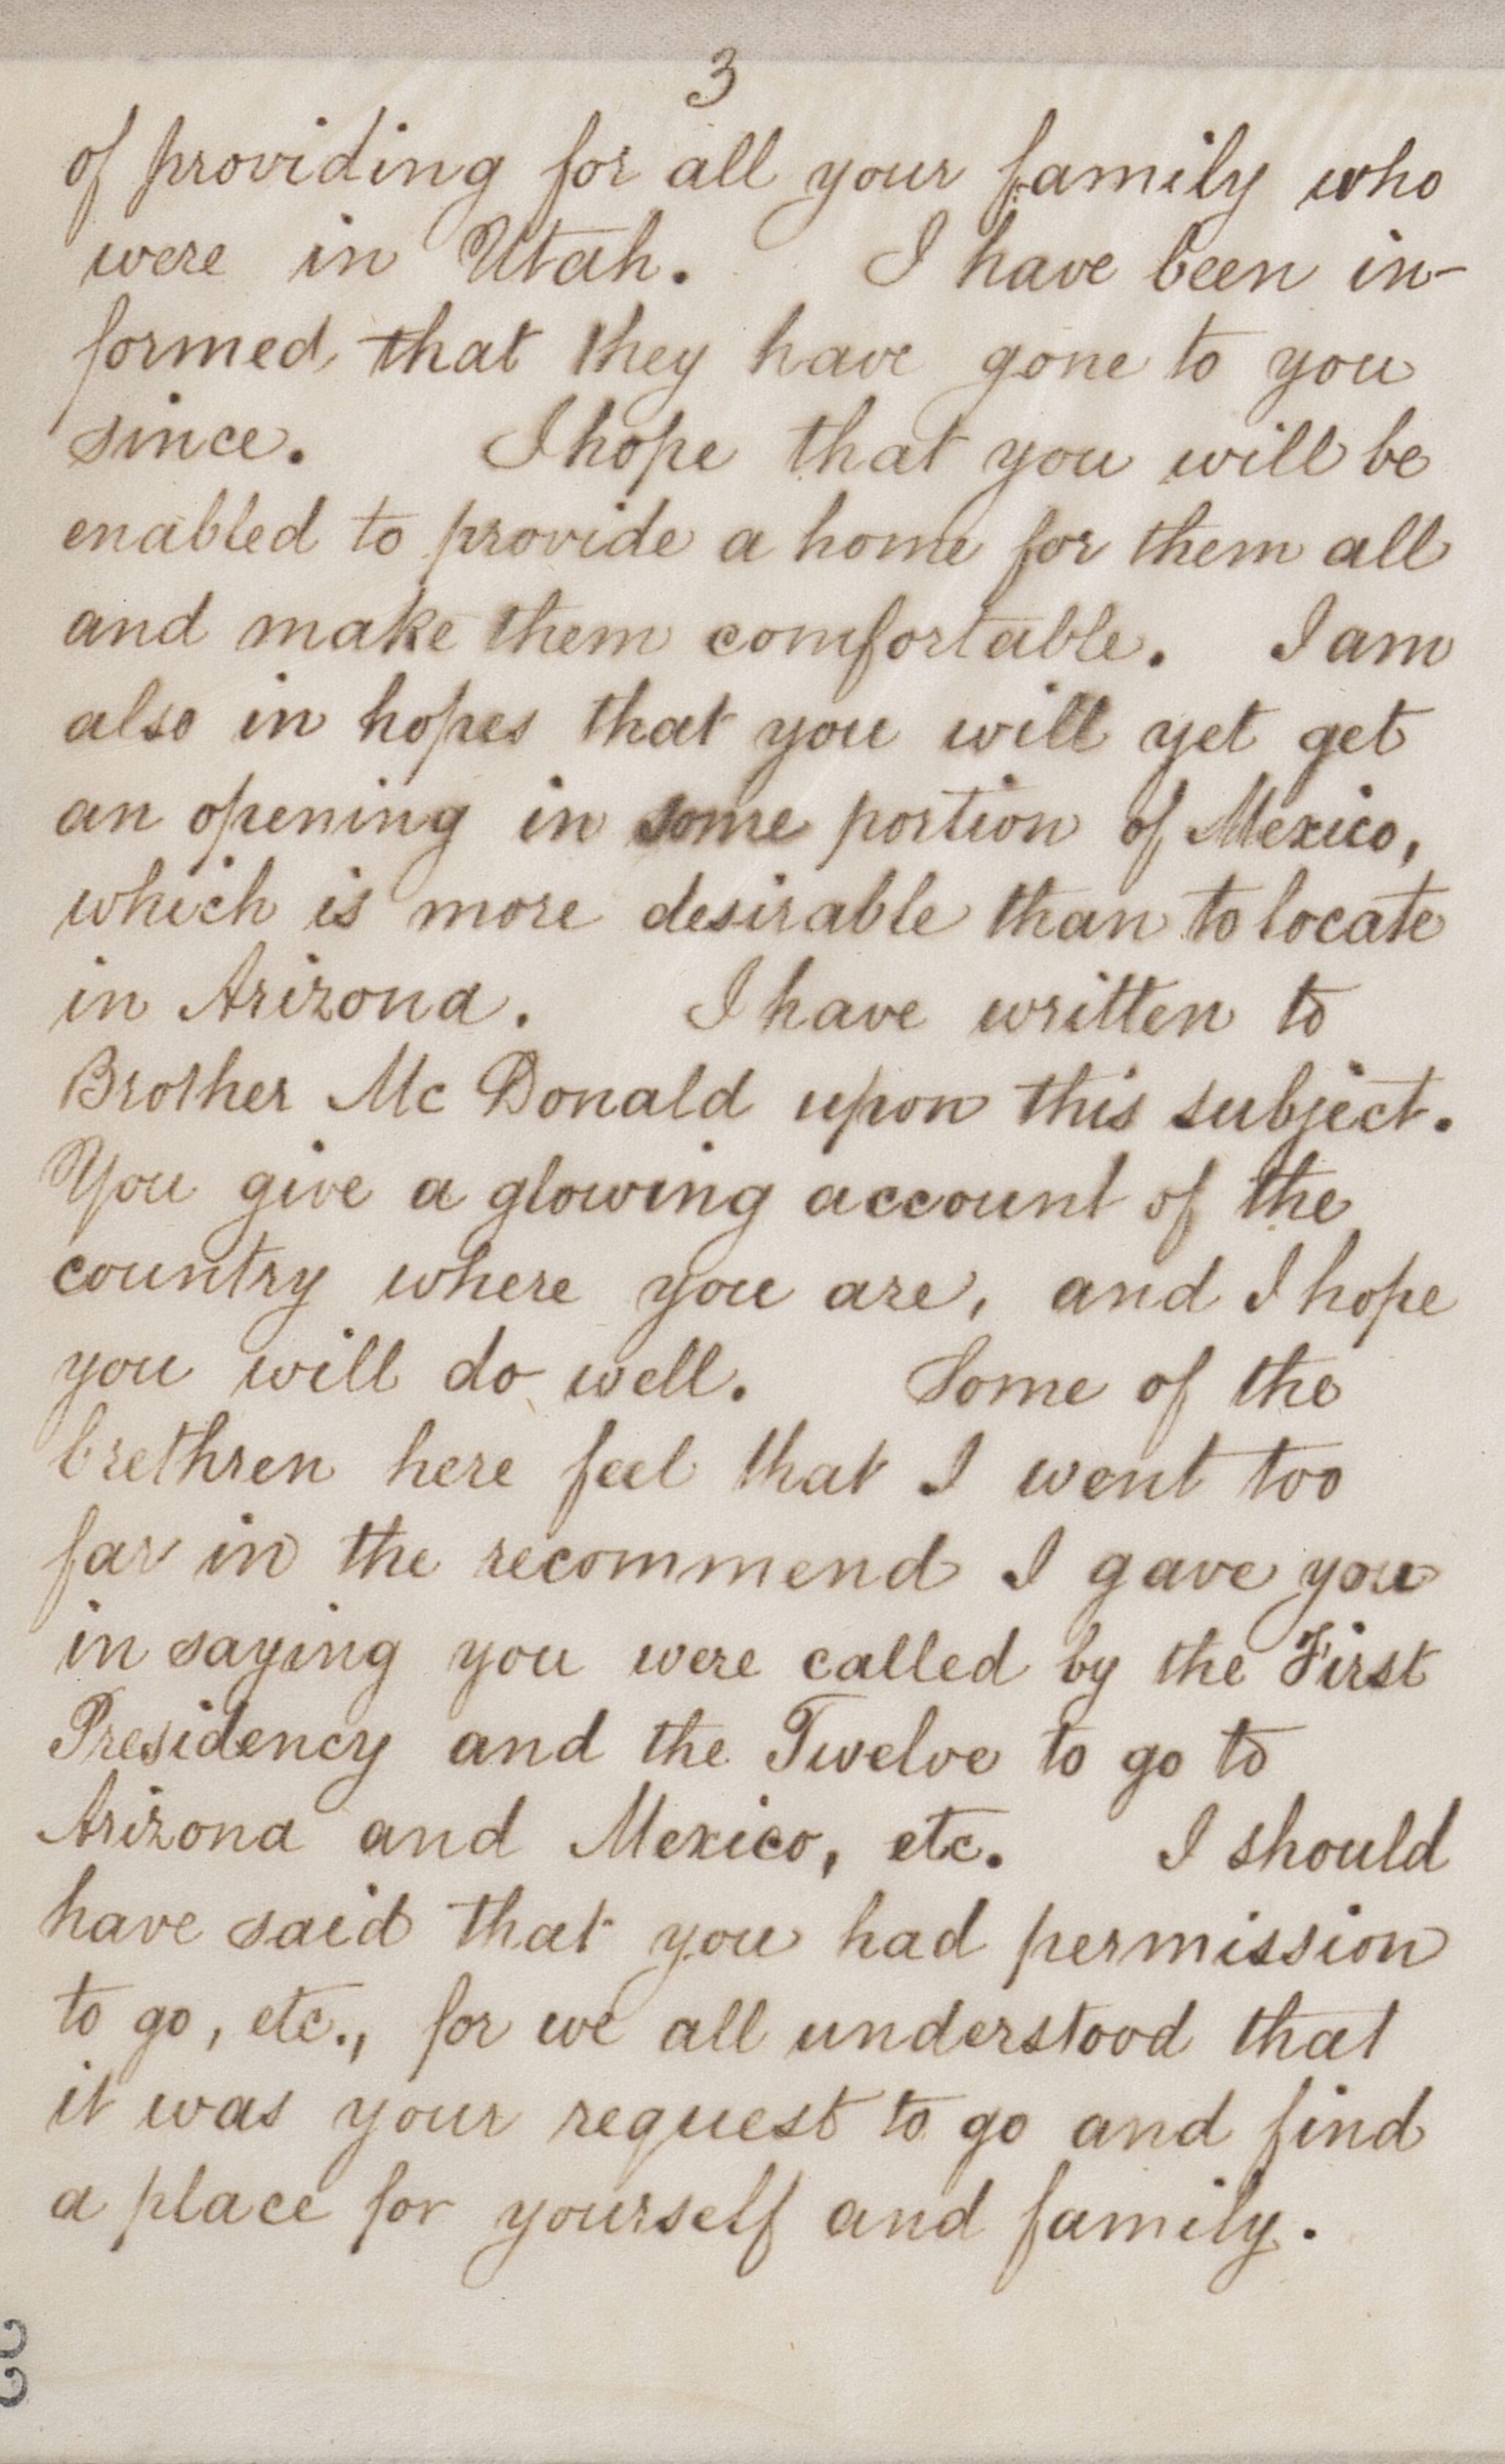 3
of providing for all your family who
were in Utah. I have been in-
formed that they have gone to you
since. I hope that you will be
enabled to provide a home for them all
and make them comfortable. I am
also in hopes that you will yet get
an opening in some portion of Mexico,
which is more desirable than to locate
in Arizona. I have written to
Brother Mc Donald upon this subject.
You give a glowing account of the
country where you are, and I hope
you will do well. Some of the
brethren here feel that I went too
far in the recommend I gave you
in saying you were called by the First
Presidency and the Twelve to go to
Arizona and Mexico, etc. I should
have said that you had permission
to go, etc., for we all understood that
it was your request to go and find
a place for yourself and family.